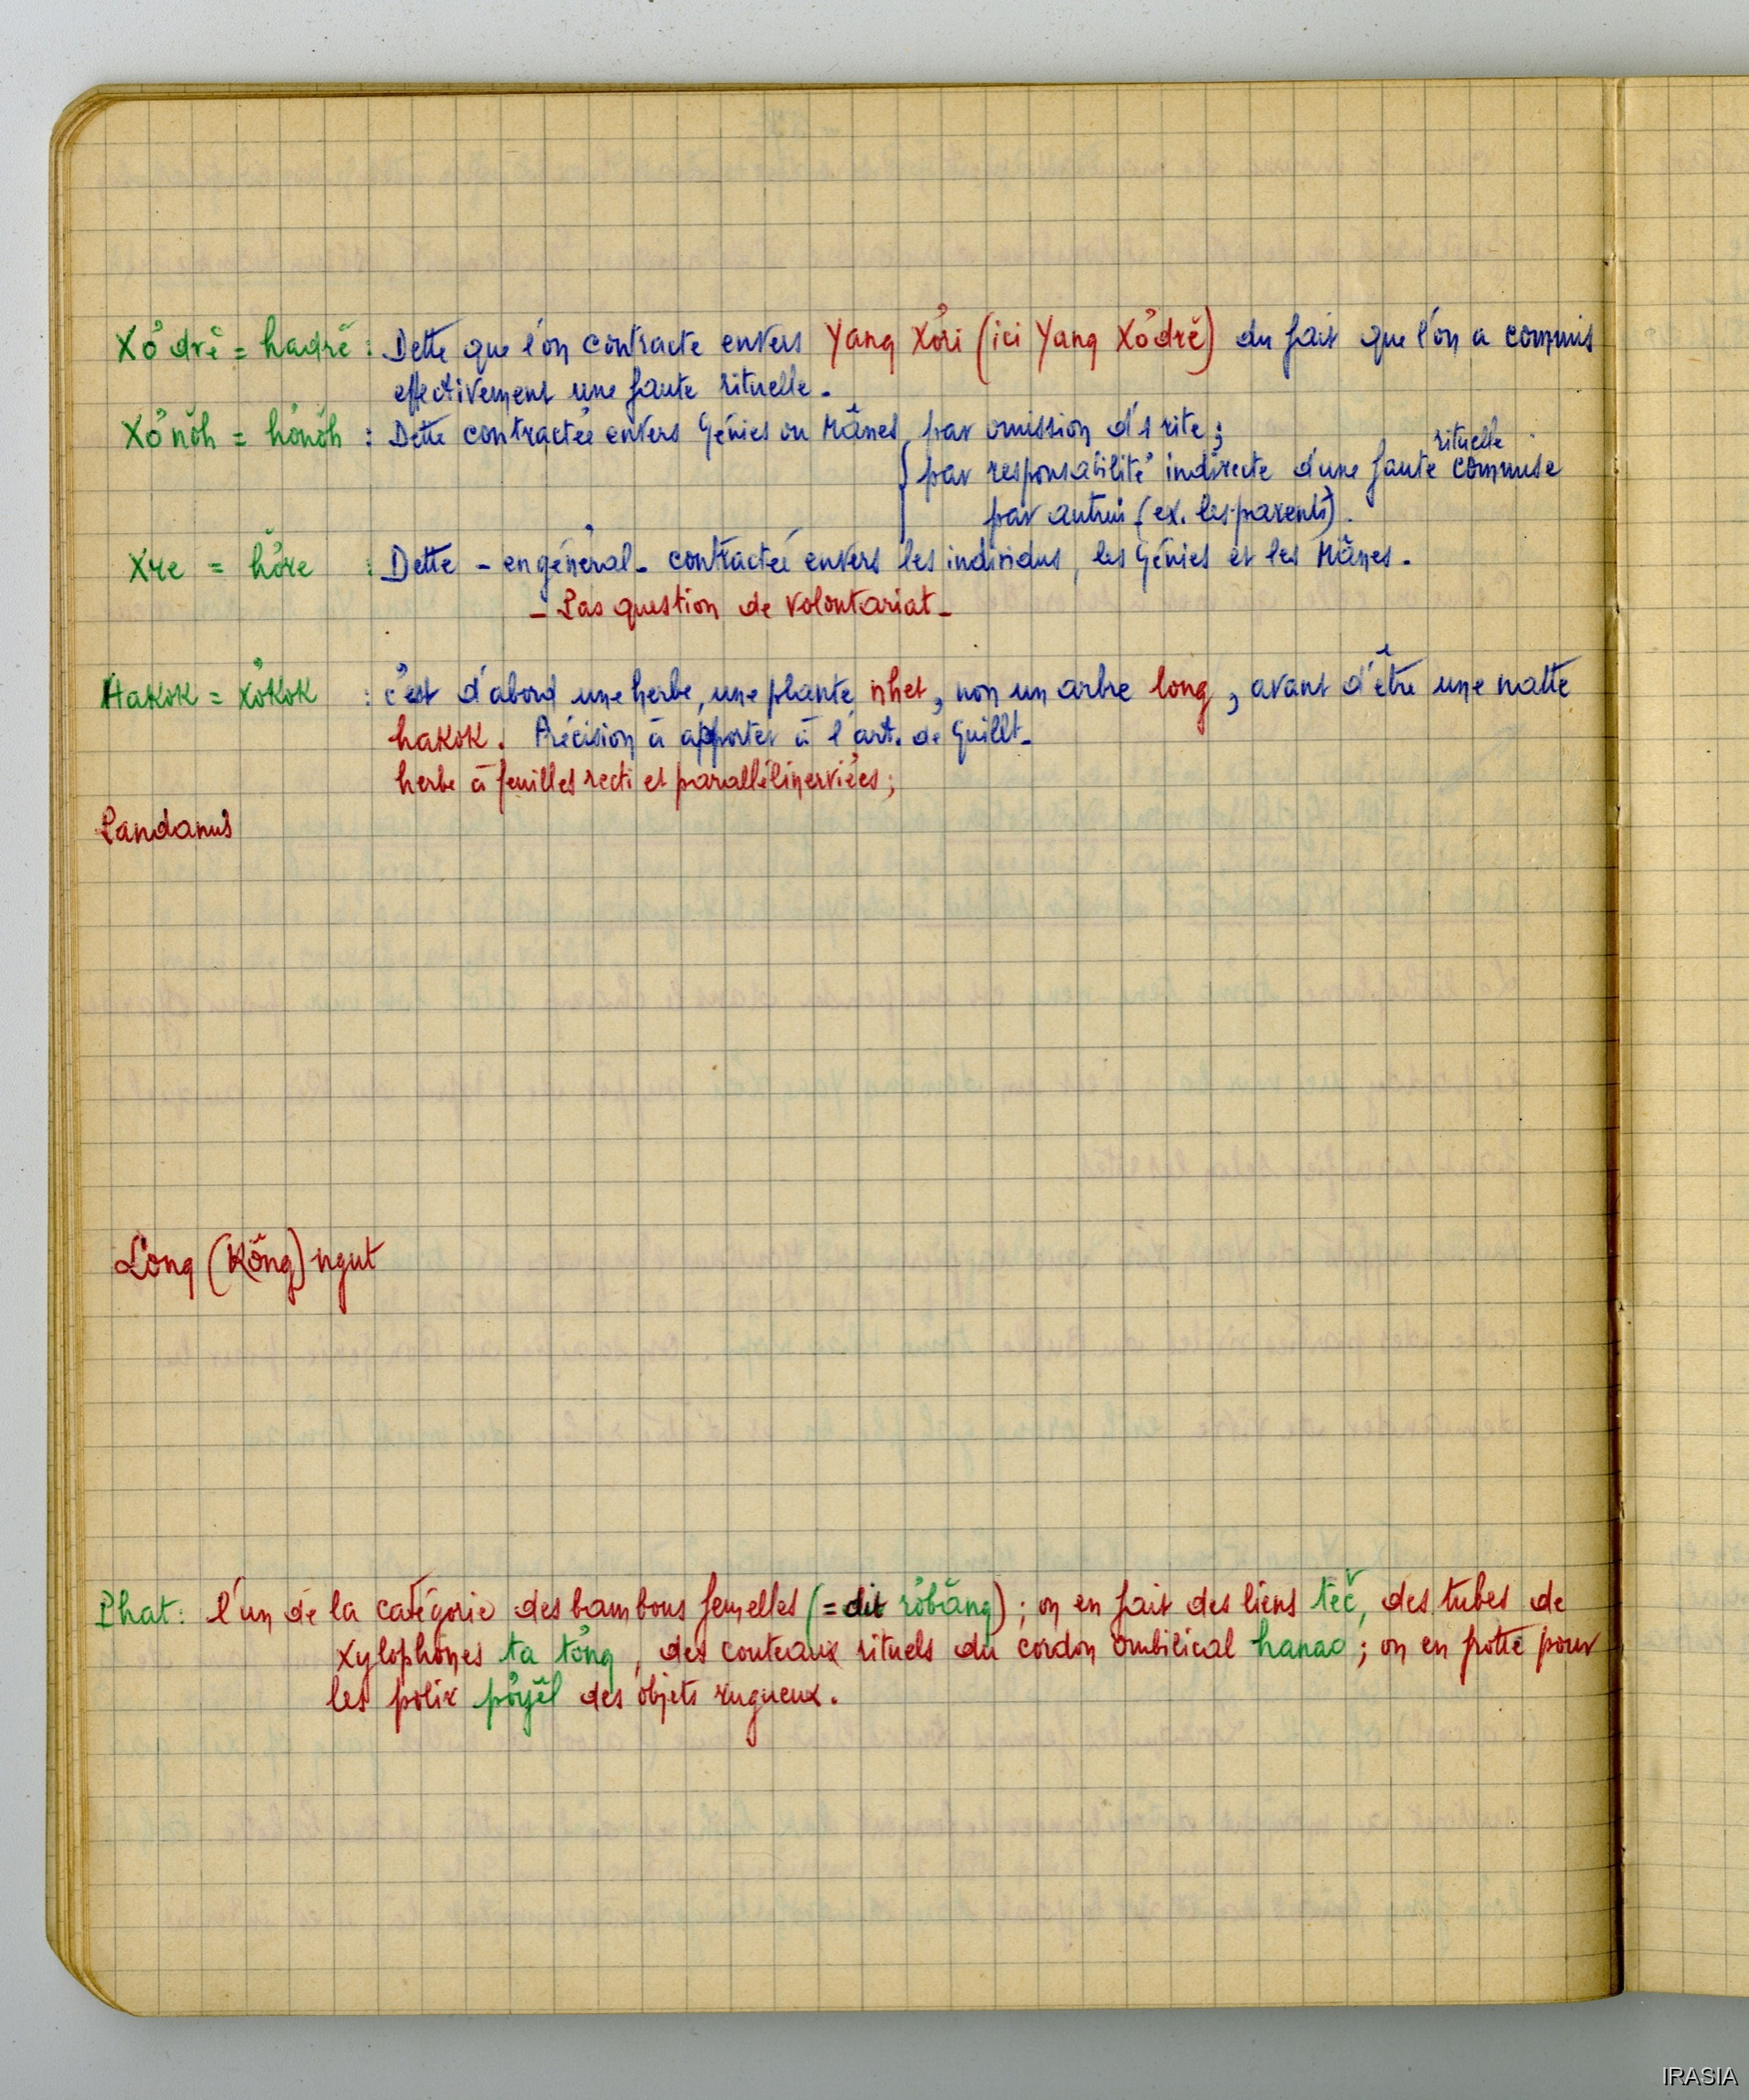 Xơ̆ drĕ = hadrĕ : Dette que l'on contracte envers Yang Xơri (ici Yang Xơ̆drĕ) du fait que l'on a commis
effectivement une faute rituelle.
Xơ̆nŏh = hơnŏh : Dette contractée envers Génies ou Mânes par omission d's rite ;
rituelle
par responsabilité indirecte d'une faute commise
par autrui (ex. les parents).
Xre = hơ̆re : Dette - en général - contractée envers les individus, les Génies et les Mânes.
- Pas question de volontariat -
Hakok = xơkok : c'est d'abord une herbe, une plante nhet, non un arbre long, avant d'être une natte
hakok. Précision à apporter à l'art. de Guillt.
herbe à feuilles recti et parallélinerviées ;
Pandanus
Long (Kơ̆ng) ngut
Phat : l'un de la catégorie des bambous femelles (= dit rơbăng) ; on en fait des liens tĕč, des tubes de
xylophones ta tơ̆ng, des couteaux rituels du cordon ombilical hanao ; on en frotte pour
les polir pơyĕl des objets rugueux.
IRASIA